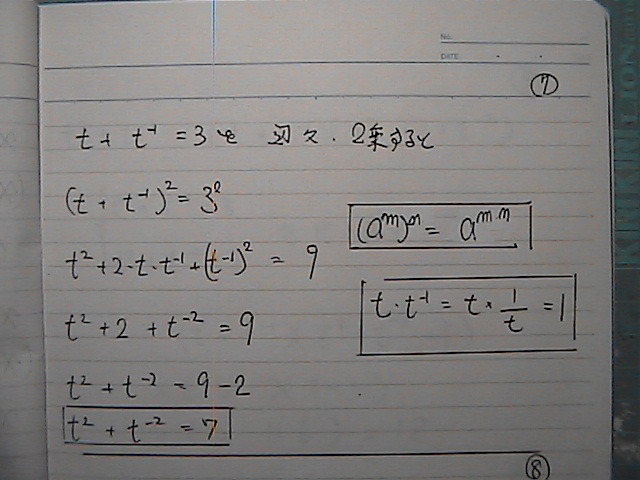 No.
DATE
⑦
t + t⁻¹ = 3を 辺々、2乗すると
(t + t⁻¹)² = 3²
(aᵐ)ⁿ = aᵐ·ⁿ
t² + 2·t·t⁻¹ + (t⁻¹)² = 9
t·t⁻¹ = t × 1/t = 1
t² + 2 + t⁻² = 9
t² + t⁻² = 9 - 2
t² + t⁻² = 7
⑧